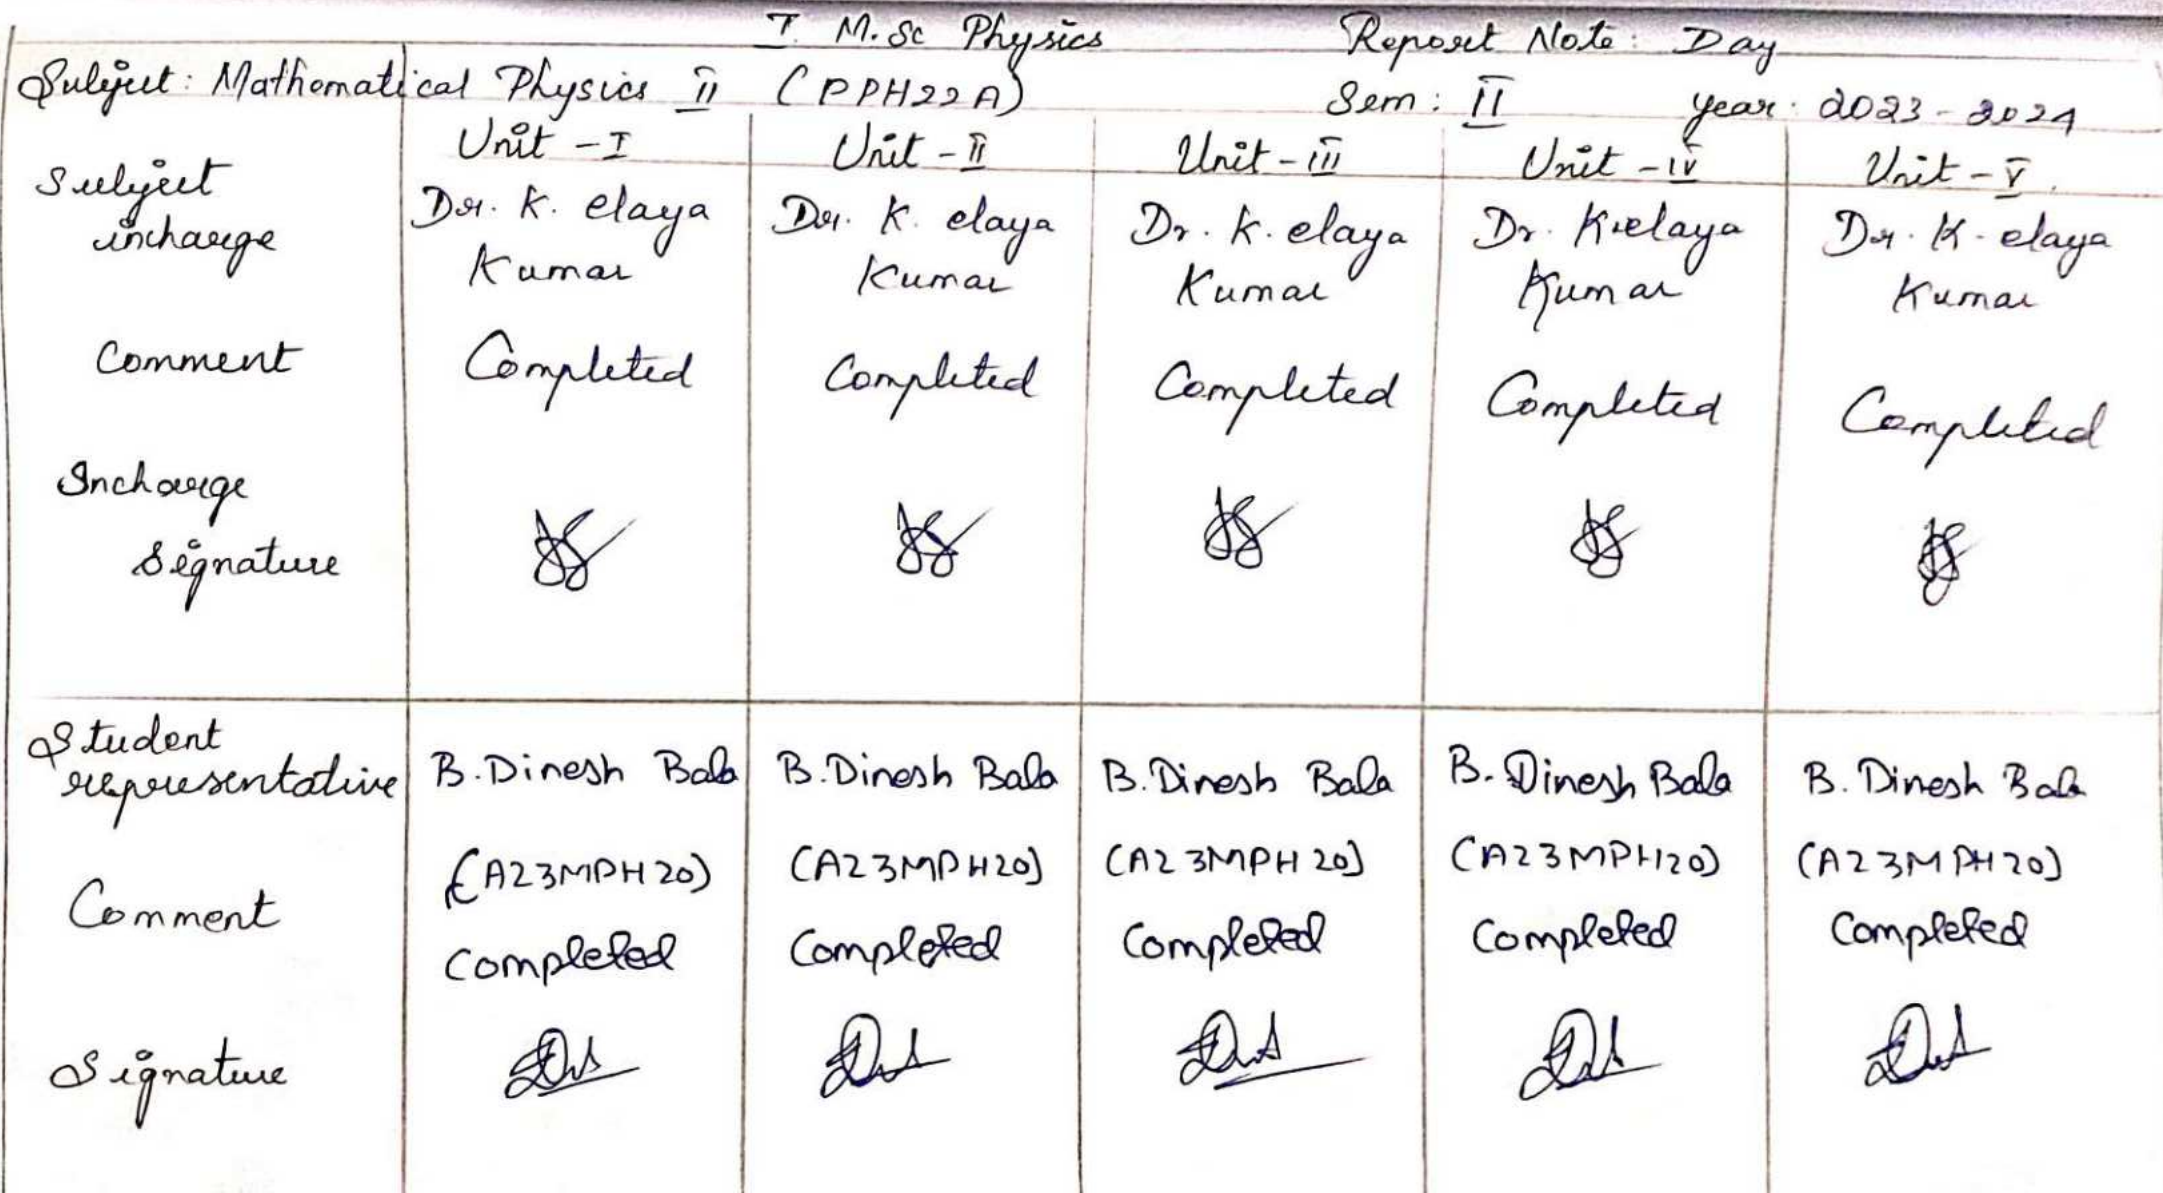 I. M.Sc Physics Report Note: Day
Subject: Mathematical Physics II (PPH22A) Sem: II Year: 2023-2024
Unit - I Unit - II Unit - III Unit - IV Unit - V
Subject Dr. K. elaya Dr. K. elaya Dr. K. elaya Dr. K. elaya Dr. K. elaya
incharge Kumar Kumar Kumar Kumar Kumar
Comment Completed Completed Completed Completed Completed
Incharge
Signature
Student
representative B. Dinesh Bala B. Dinesh Bala B. Dinesh Bala B. Dinesh Bala B. Dinesh Bala
(A23MPH20) (A23MPH20) (A23MPH20) (A23MPH20) (A23MPH20)
Comment Completed Completed Completed Completed Completed
Signature